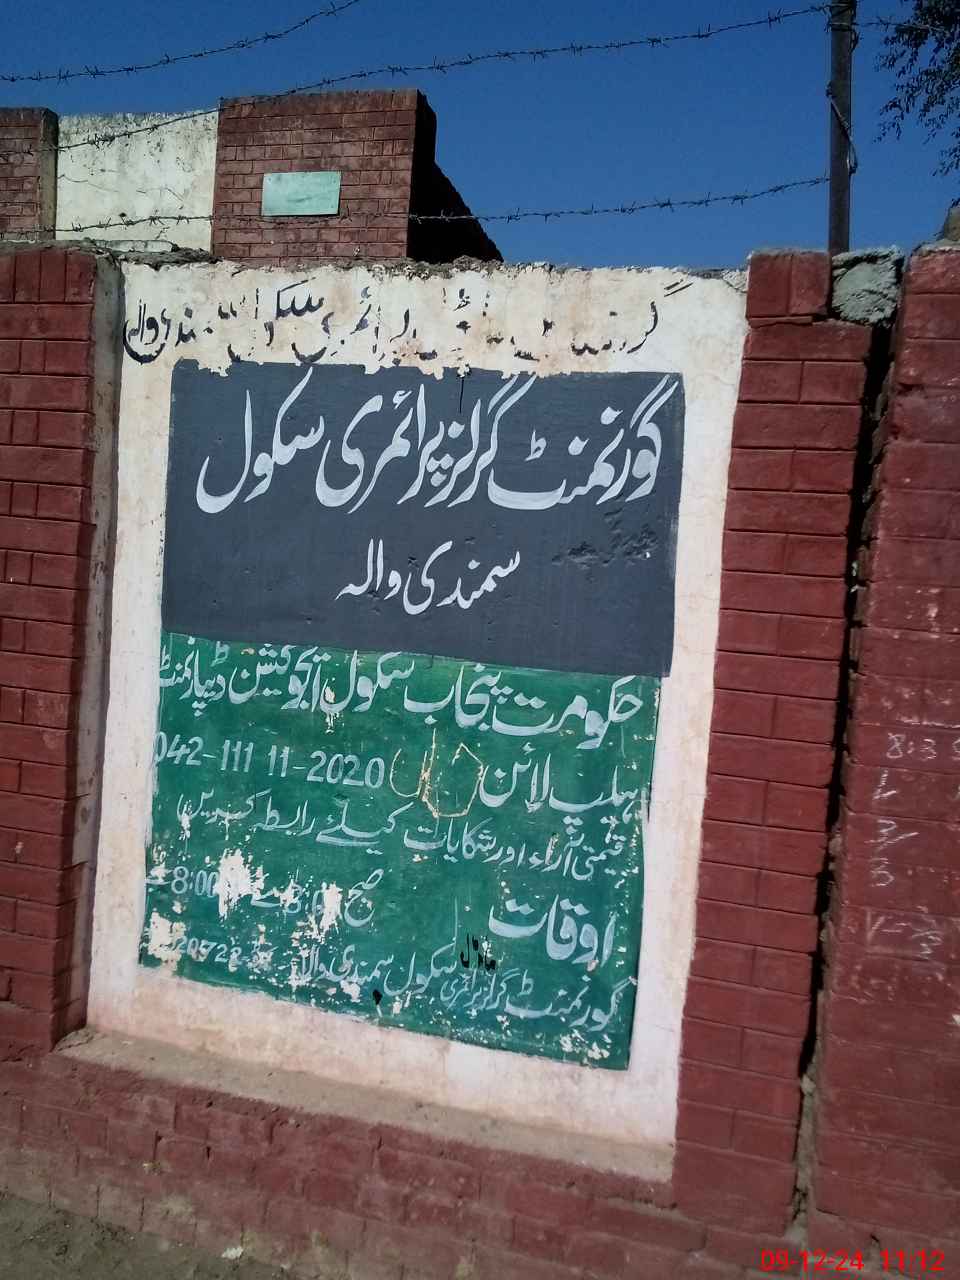 پرائمری سکول سمندری والہ
گورنمنٹ گرلز پرائمری سکول
سمندی والہ
حکومت پنجاب سکول ایجوکیشن ڈیپارٹمنٹ
ہیلپ لائن 042-111 11-2020
قیمتی آراء اور شکایات کیلئے رابطہ کریں
اوقات صبح 8:00 سے 8:00
گورنمنٹ گرلز پرائمری ماڈل سکول سمندی والہ
8:3
09-12-24 11:12